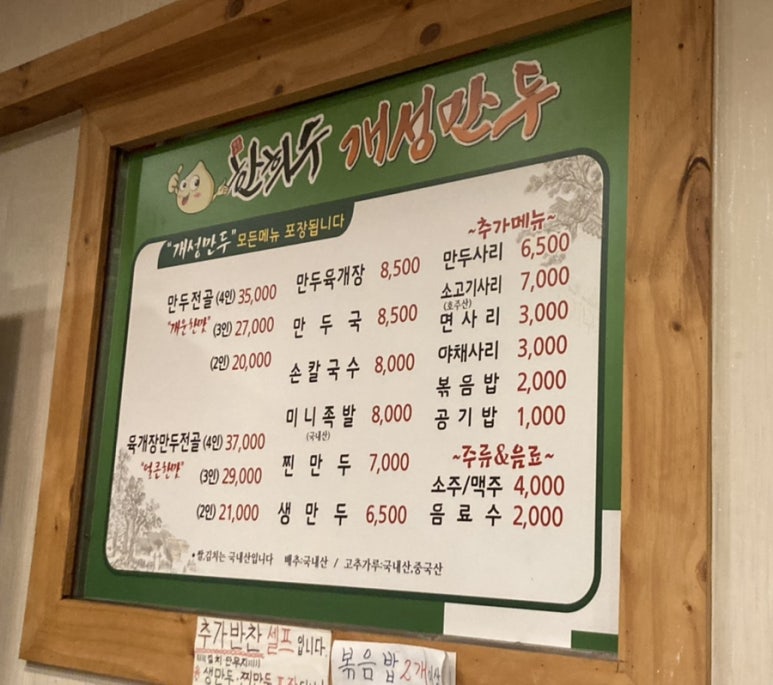 만두 개성만두
"개성만두" 모든메뉴 포장됩니다
만두전골 (4인) 35,000
"개운한맛" (3인) 27,000
(2인) 20,000
육개장만두전골 (4인) 37,000
"얼큰한맛" (3인) 29,000
(2인) 21,000
만두육개장 8,500
만두국 8,500
손칼국수 8,000
미니족발 8,000
(국내산)
찐만두 7,000
생만두 6,500
~추가메뉴~
만두사리 6,500
소고기사리 7,000
(호주산)
면사리 3,000
야채사리 3,000
볶음밥 2,000
공기밥 1,000
~주류&음료~
소주/맥주 4,000
음료수 2,000
• 쌀,김치는 국내산입니다 배추:국내산 / 고추가루:국내산,중국산
추가반찬 셀프입니다.
생만두·찐만두
볶음밥 2개